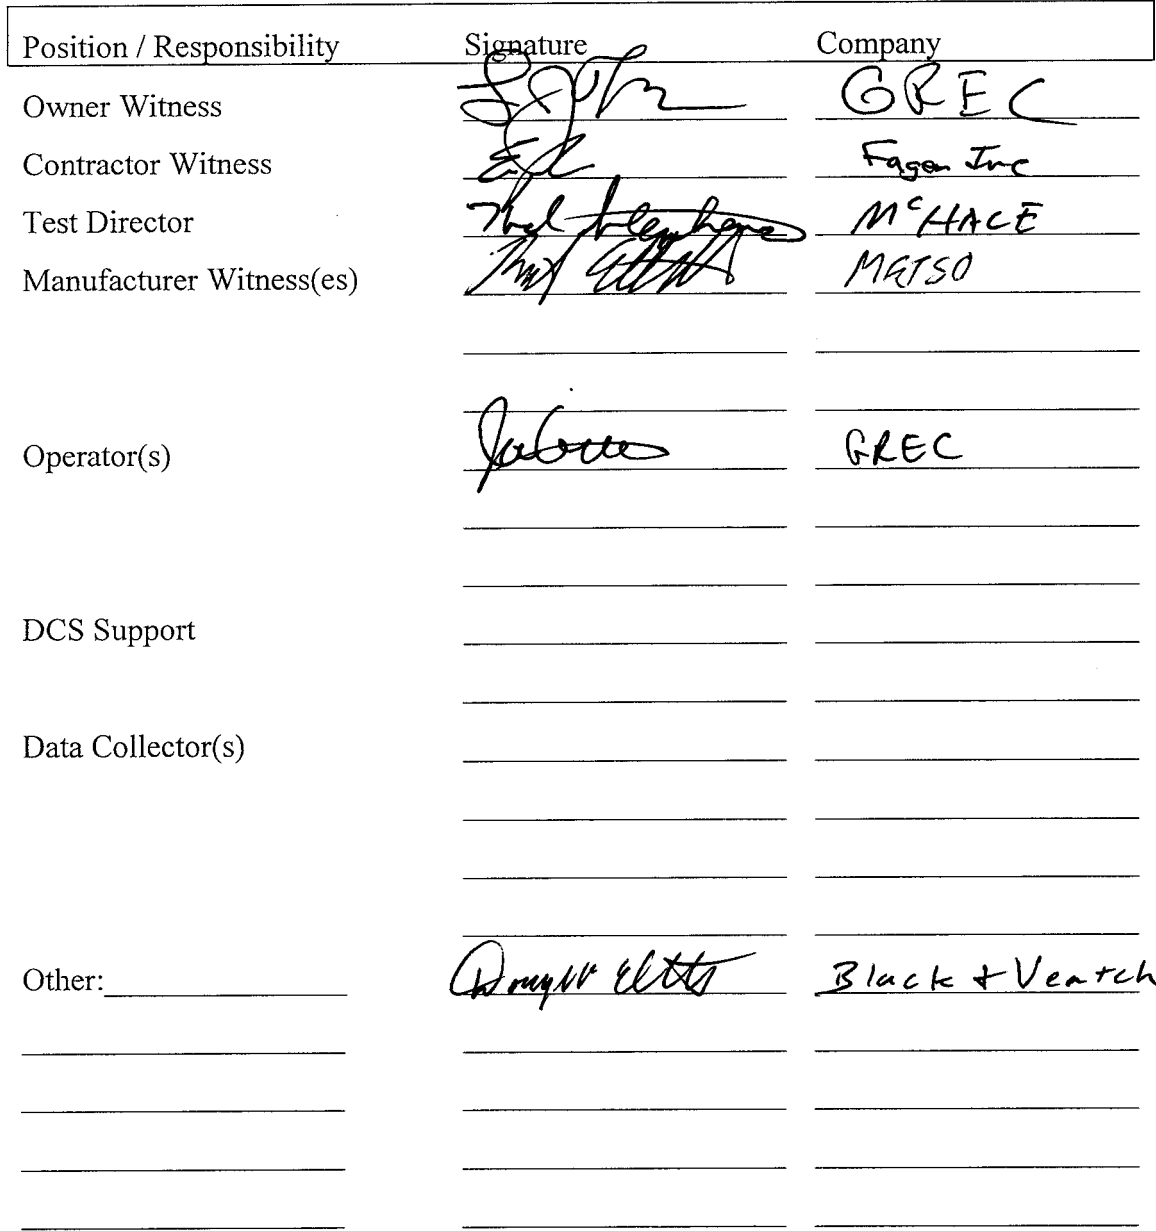 Position / Responsibility Signature Company
Owner Witness GREC
Contractor Witness Fagen Inc
Test Director McHALE
Manufacturer Witness(es) METSO
Operator(s) GREC
DCS Support
Data Collector(s)
Other: Black + Veatch